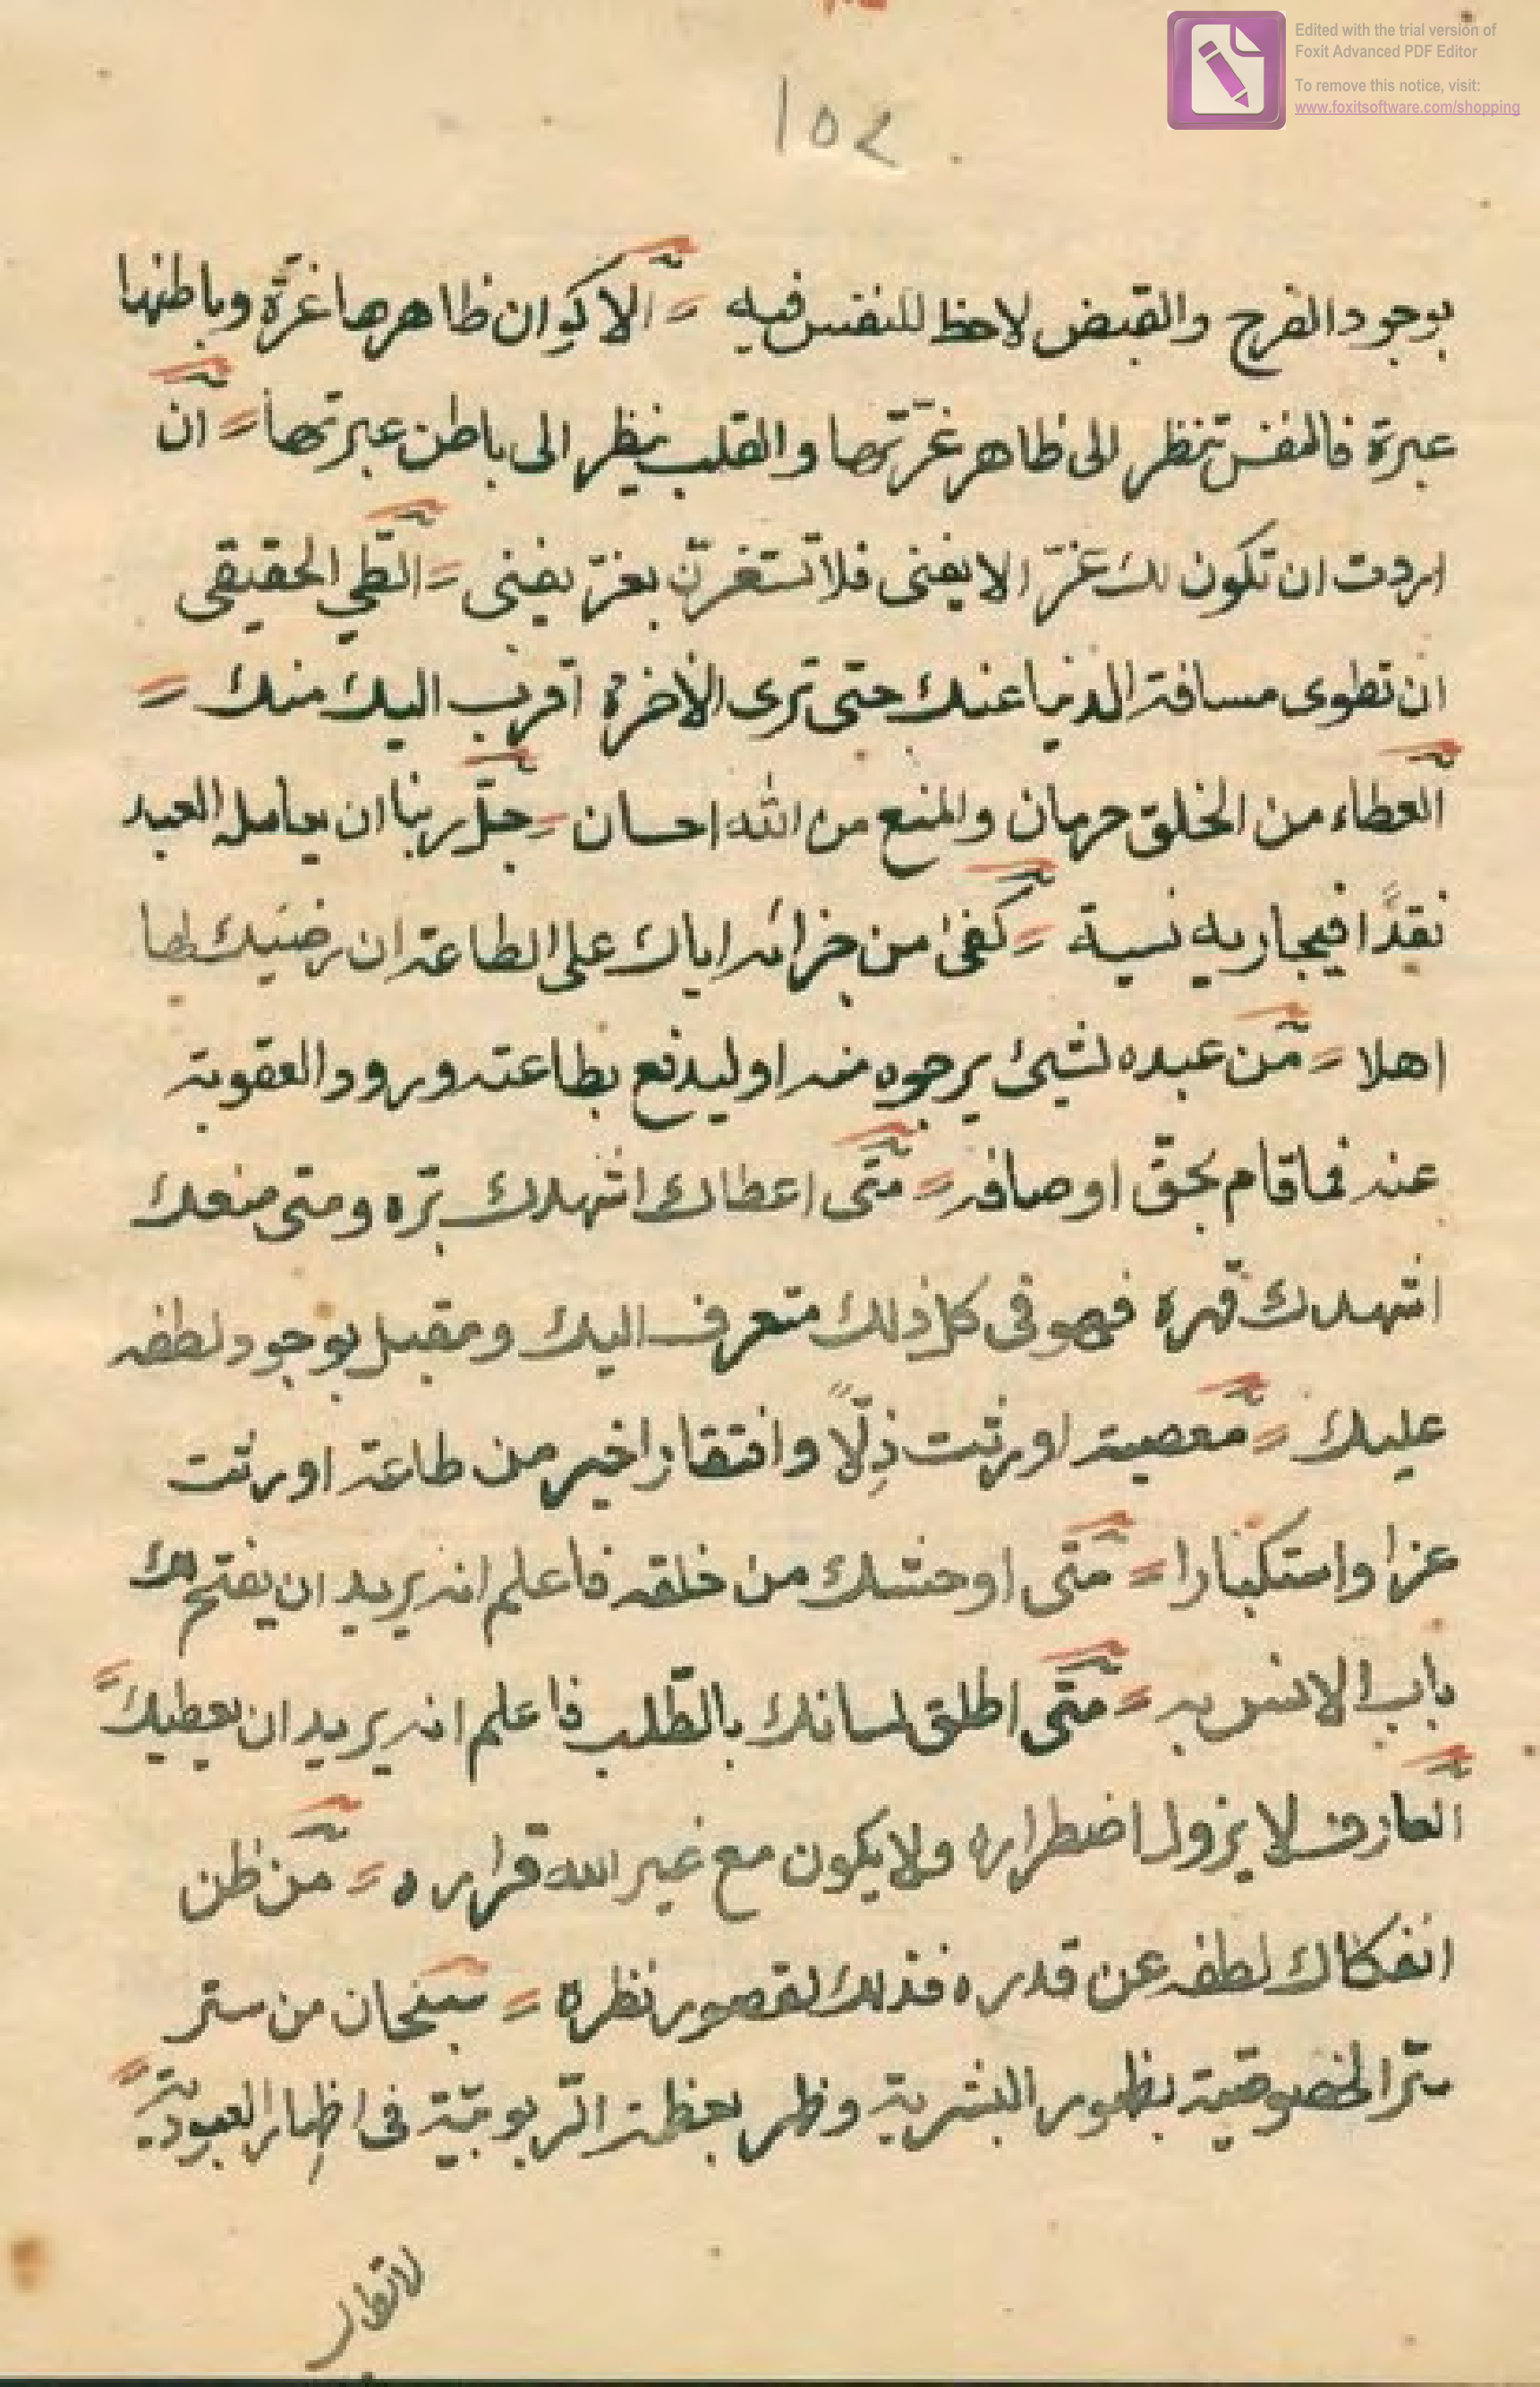 Edited with the trial version of
Foxit Advanced PDF Editor
To remove this notice, visit:
www.foxitsoftware.com/shopping
١٥٤
بوجود الفرح والقبض لاحظ للنفس فيه = الاكوان ظاهرها غرّة وباطنها
عبرة فالنفس تنظر الى ظاهر غرّتها والقلب ينظر الى باطن عبرتها = ان
اردت ان تكون لك عزّ الا يفنى فلا تستغرنّ بعزّ يفنى = الطّي الحقيقى
ان تطوى مسافة الدنيا عنك حتى ترى الاخرة اقرب اليك منك =
العطاء من الخلق حرمان والمنع من الله احسان = جلّ ربنا ان يعامله العبد
نقدًا فيجازيه نسية = كفى من جزائه اياك على الطاعة ان رضيك لها
اهلا = من عبده لشيئ يرجوه منه او ليدفع بطاعته ورود العقوبة
عنه فما قام بحقّ اوصافه = متى اعطاك اشهدك برّه ومتى منعك
اشهدك قهره فهو فى كل ذلك متعرف اليك ومقبل بوجود لطفه
عليك = معصية اورثت ذلّاً وافتقارا خير من طاعة اورثت
عزا واستكبارا = متى اوحشك من خلقه فاعلم انه يريد ان يفتح لك
باب الانس به = متى اطلق لسانك بالطّلب فاعلم انه يريد ان يعطيك =
العارف لا يزول اضطراره ولا يكون مع غير الله قراره = من ظن
انفكاك لطفه عن قدره فذلك لقصور نظره = سبحان من ستر
سرّ الخصوصية بظهور البشرية وظهر بعظمة الرّبوبيّة فى اظهار العبوديّة =
لا تطالب